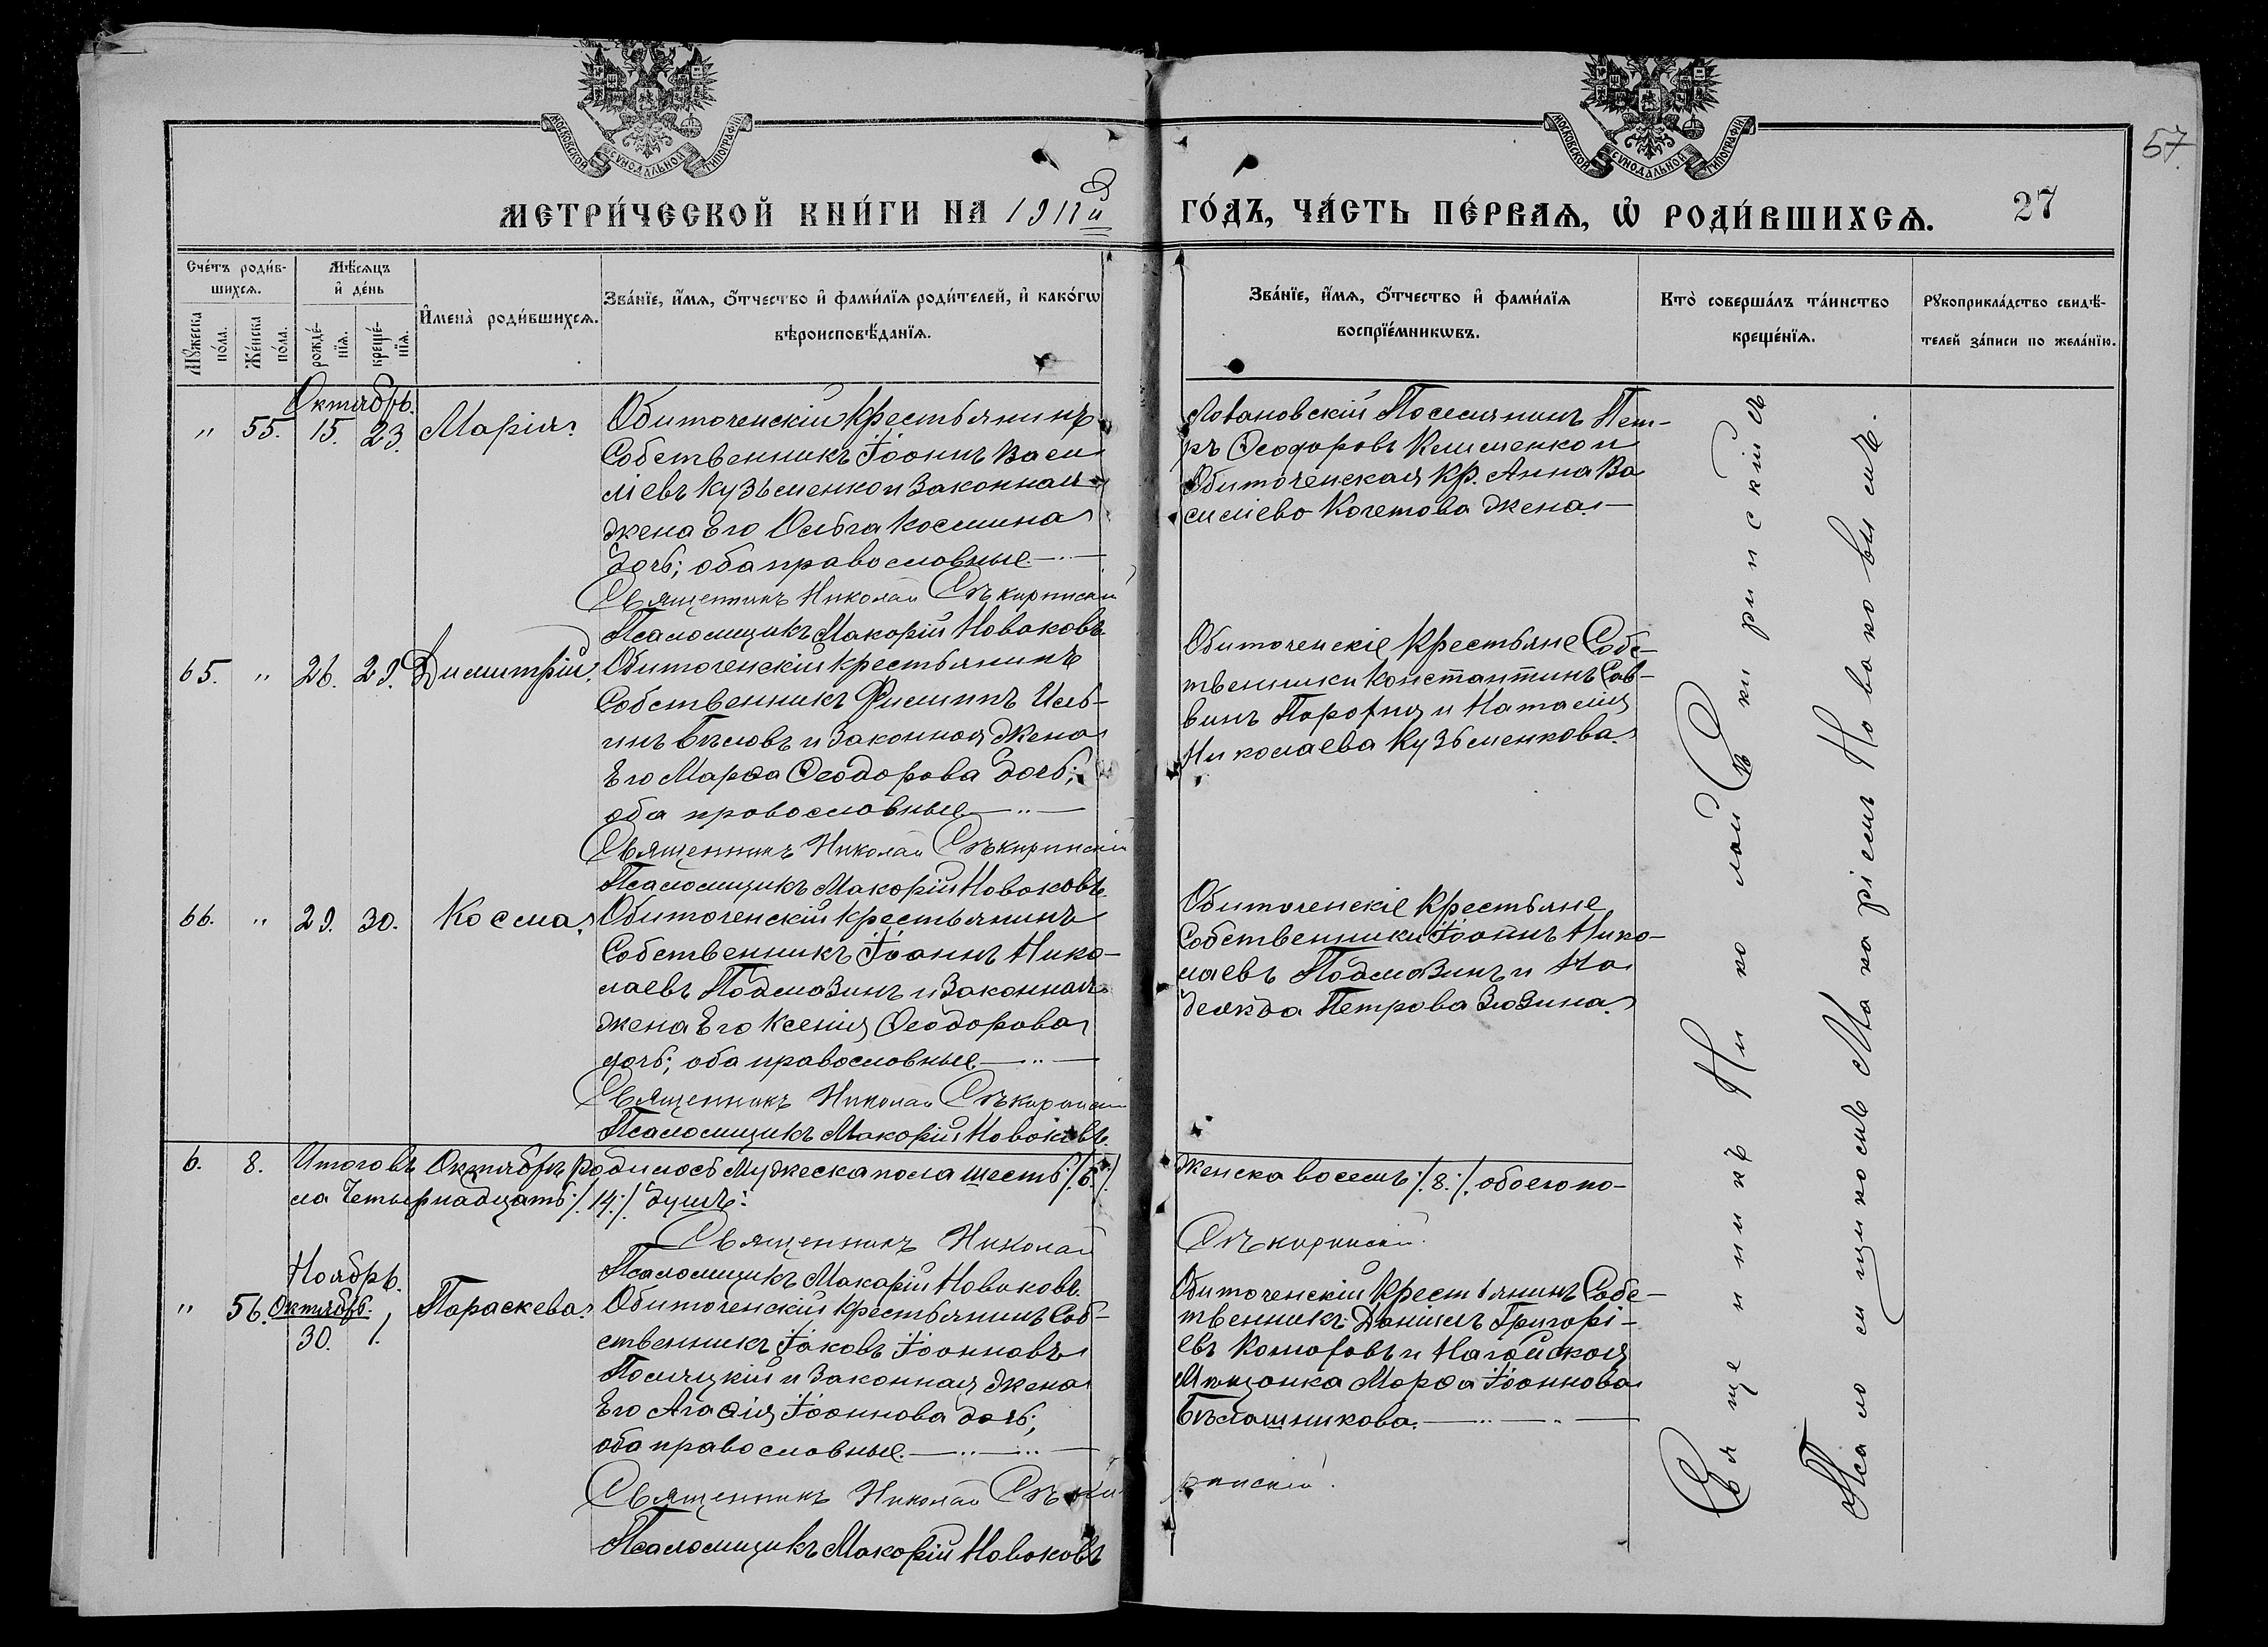 МОСКОВСКОЙ СѴНОДАЛЬНОЙ ТИПОГРАФІИ
МОСКОВСКОЙ СѴНОДАЛЬНОЙ ТИПОГРАФІИ
57
МЕТРИ́ЧЕСКОЙ КНИ́ГИ НА 1911й
ГО́ДЪ, ЧА́СТЬ ПЕ́РВАѦ, Ѡ҆ РОДИ́ВШИХСѦ.
27
Сче́тъ роди́в-
шихсѧ.
Мѣ́сѧцъ
и҆ де́нь
Мꙋ́жеска
по́ла.
Же́нска
по́ла.
рожде́-
нїѧ.
креще́-
нїѧ.
И҆мена̀ роди́вшихсѧ.
Зва́нїе, и҆́мѧ, ѻ҆́тчество и҆ фами́лїѧ роди́телей, и҆ како́гѡ
вѣроисповѣ́данїѧ.
Зва́нїе, и҆́мѧ, ѻ҆́тчество и҆ фами́лїѧ
воспрїе́мникѡвъ.
Кто̀ соверша́лъ та́инство
креще́нїѧ.
Рꙋкоприкла́дство свидѣ́-
телей за́писи по жела́нїю.
Октябрь.
" 55. 15. 23. Марія.
Обиточенскій крестьянинъ
Собственникъ Іоаннъ Васи
ліевъ Кузьменко и законная
жена Его Ольга Космина
дочь; оба православные.
Священникъ Николай Сѣкиринскій
Псаломщикъ Макарій Новаковъ.
Поселянинъ Пет-
ръ Ѳеодоровъ и
Обиточенская Кр. Анна Ва
силіево Кочетова жена.
65. " 26. 29. Димитрій.
Обиточенскій крестьянинъ
Собственникъ Филиппъ Иль-
инъ Бѣловъ и законная жена
Его Марѳа Ѳеодорова дочь;
оба православные
Священникъ Николай Сѣкиринскій
Псаломщикъ Макарій Новаковъ.
Обиточенскіе Крестьяне Собс-
твенники Константинъ Сав-
винъ и Наталія
Николаева Кузьменкова.
66. " 29. 30. Косма.
Обиточенскій крестьянинъ
Собственникъ Іоаннъ Нико-
лаевъ Подмазинъ и законная
жена Его Ксенія Ѳеодорова
дочь; оба православные
Священникъ Николай Сѣкиринскій
Псаломщикъ Макарій Новаковъ.
Обиточенскіе Крестьяне
Собственники Іоаннъ Нико-
лаевъ Подмазинъ и На
дежда Петрова Зюзина.
6. 8. Итого въ Октябрѣ родилось Мужеска пола шесть /:6:/
Женска восемь /:8:/ обоего по-
ла Четырнадцать /:14:/ душъ:
Священникъ Николай
Сѣкиринскій.
Псаломщикъ Макарій Новаковъ.
Ноябрь.
" 56. Октябрь. 30. 1. Параскева.
Обиточенскій крестьянинъ Соб-
ственникъ Іаковъ Іоанновъ
Поляцкій и законная жена
Его Агаѳія Іоаннова дочь;
оба православные.
Священникъ Николай Сѣки
ринскій.
Псаломщикъ Макарій Новаковъ
Обиточенскій Крестьянинъ Собс-
твенникъ Даніилъ Григорі-
евъ и Нагайская
Мѣщанка Марѳа Іоаннова
Бѣлашникова.
Священникъ Николай Сѣкиринскій съ
Псаломщикомъ Макаріемъ Новаковымъ.